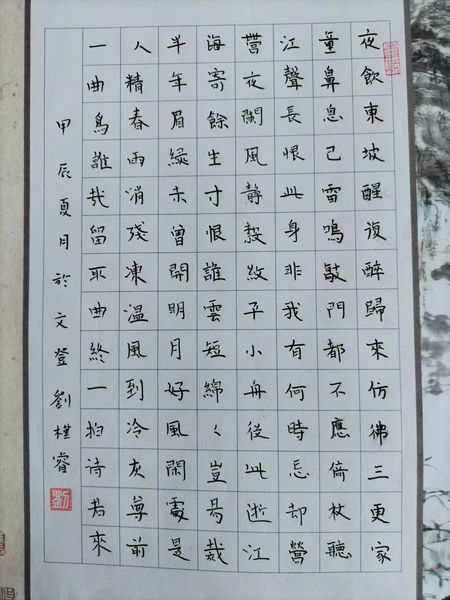 夜飲東坡醒復醉歸來仿彿三更家
童鼻息已雷鳴敲門都不應倚杖聽
江聲長恨此身非我有何時忘却營
營夜闌風静縠紋平小舟從此逝江
海寄餘生寸恨誰雲短綿々豈易裁
半年眉緑未曾開明月好風閑處是
人精春雨消殘凍温風到冷灰尊前
一曲為誰哉留取曲終一拍待君來
甲辰夏月於文登劉睿
劉